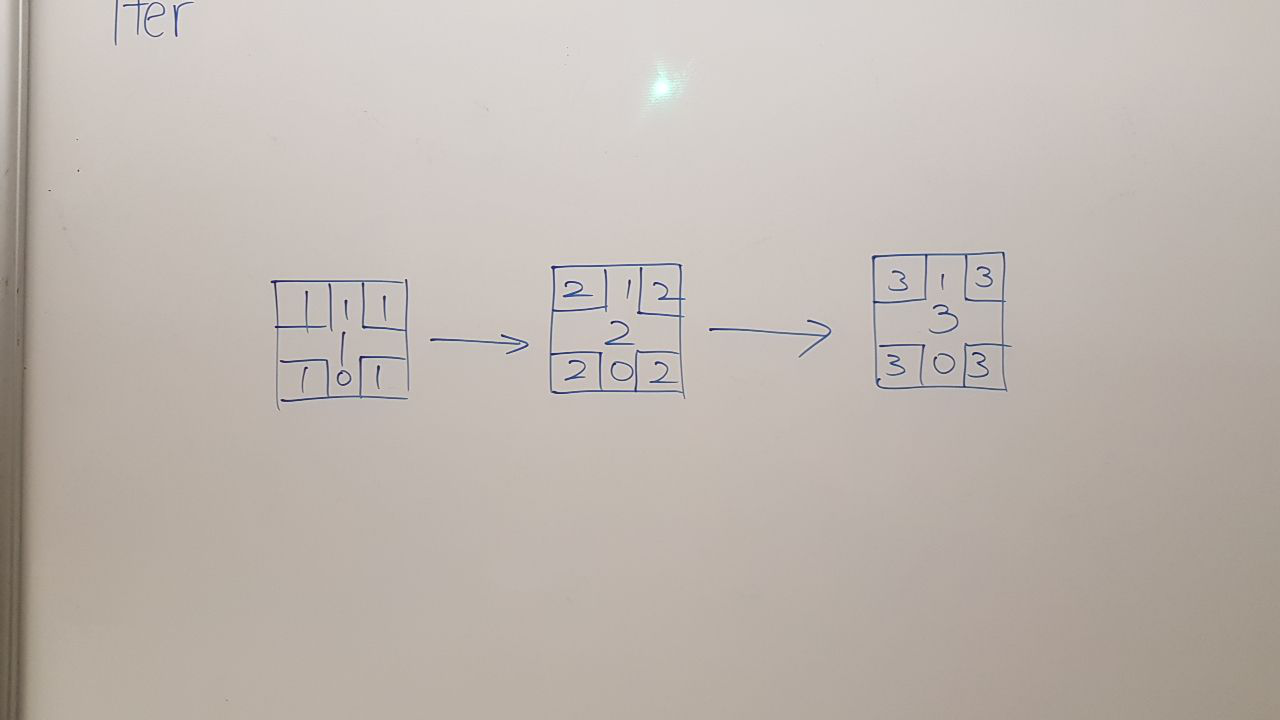 Iter
1 1 1
1
1 0 1
2 1 2
2
2 0 2
3 1 3
3
3 0 3